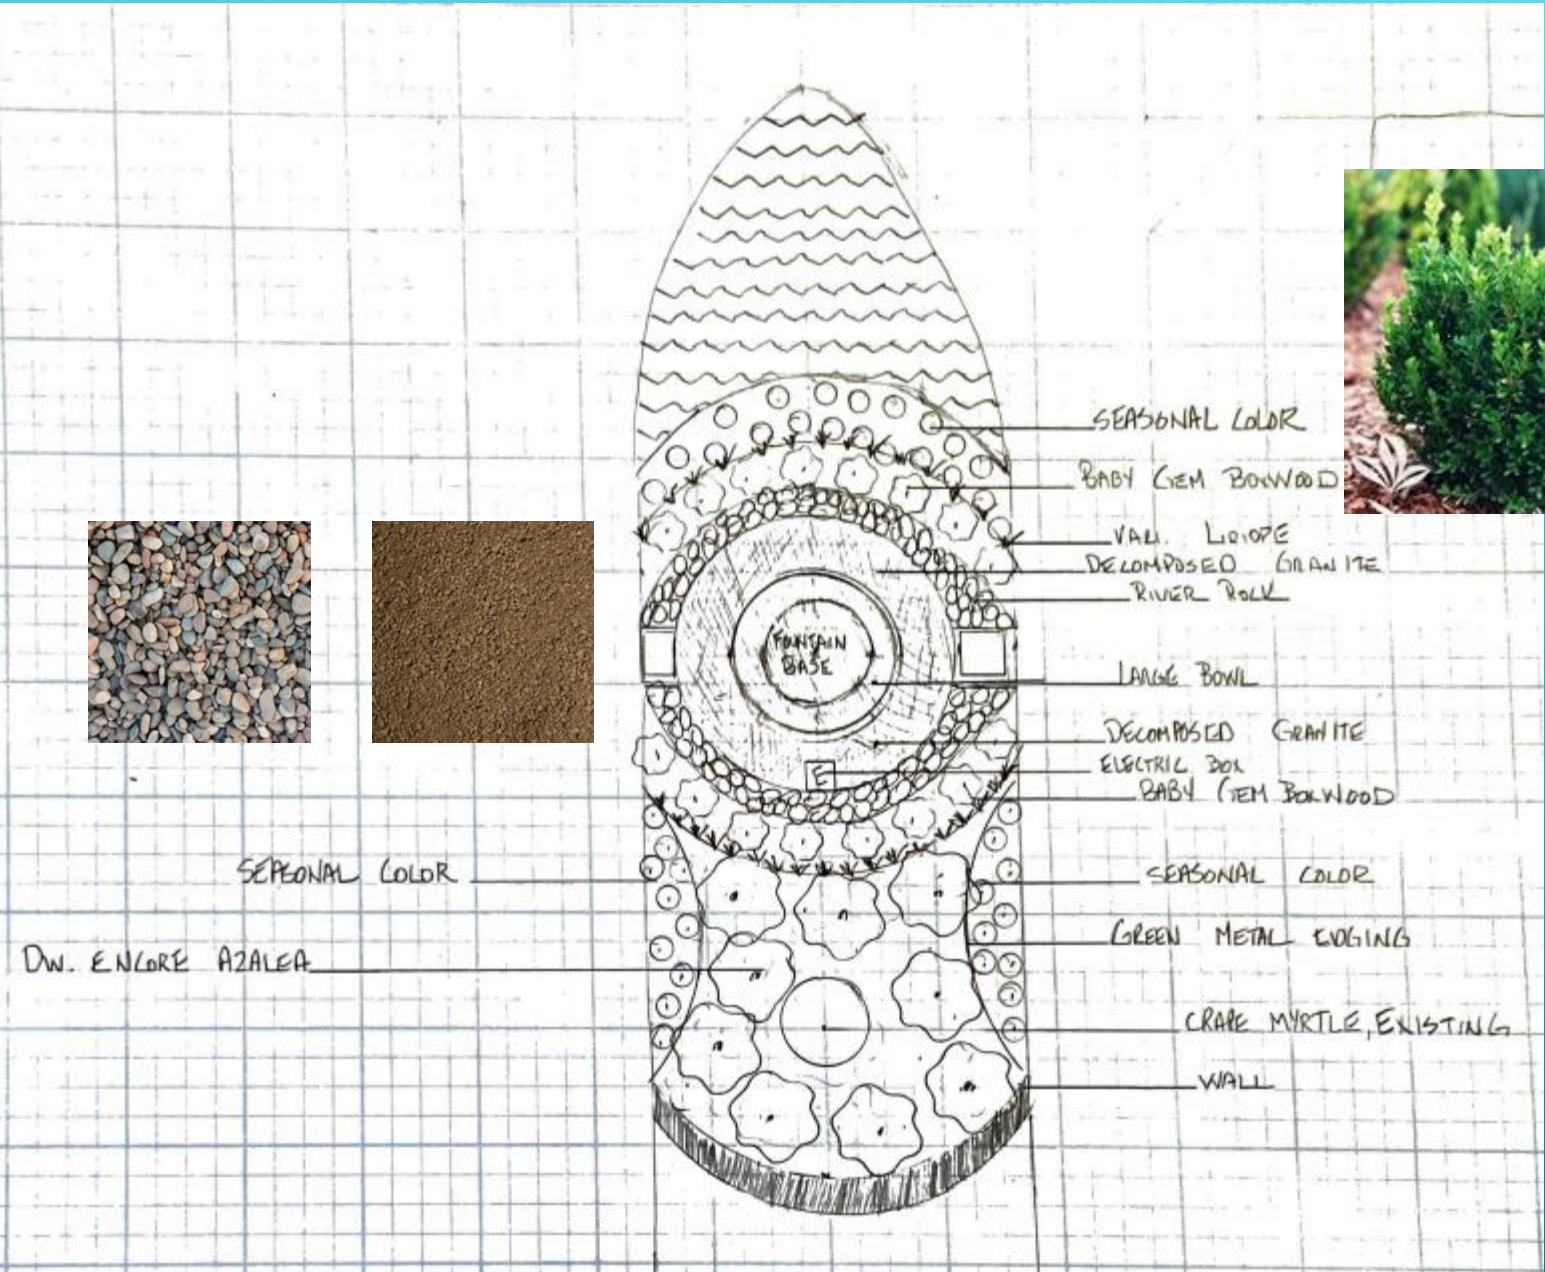 SEASONAL COLOR
BABY GEM BOXWOOD
VARI. LIRIOPE
DECOMPOSED GRANITE
RIVER ROCK
FOUNTAIN
BASE
LARGE BOWL
DECOMPOSED GRANITE
E
ELECTRIC BOX
BABY GEM BOXWOOD
SEASONAL COLOR
SEASONAL COLOR
GREEN METAL EDGING
DW. ENCORE AZALEA
CRAPE MYRTLE, EXISTING
WALL